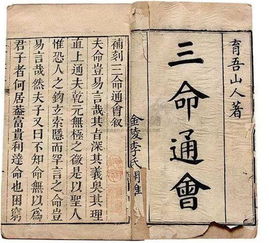 育吾山人著
三命通會
金陵李氏
補刻三命通會叙
夫命豈易言哉其旨深其義奥其理
直上通夫乾元無極之後是以聖人
惟恐人之鉤玄索隱而罕言之命豈
易言哉然夫子又曰不知命無以爲
君子者何居蓋富貴利達命也困窮